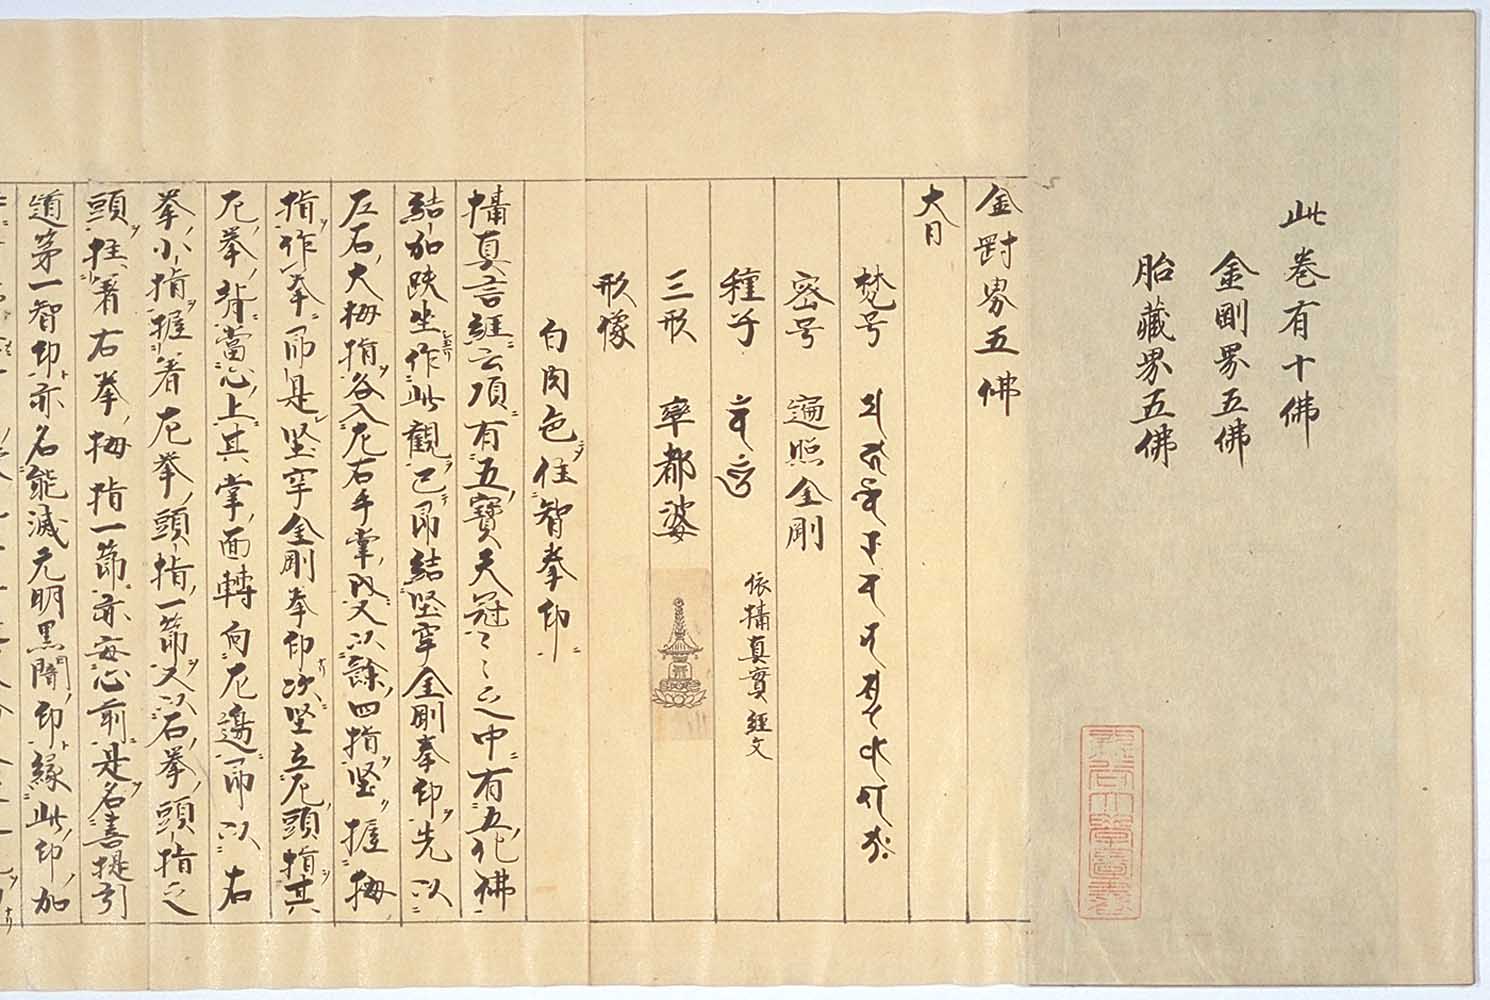 此巻有十佛
金剛界五佛
胎藏界五佛
金剛界五佛
大日
梵号
密号 遍照金剛
種子
依攝真實経文
三形 率都婆
形像
白肉色住智拳印
攝真言経云頂有五寶天冠々々之中有五化佛
結加趺坐作此觀已即結堅牢金剛拳印先以
左右大拇指各入左右手掌内又以餘四指堅握拇
指作拳即是堅牢金剛拳印次堅立左頭指其
左拳背當心上其掌面轉向左邊即以右
拳小指握著左拳頭指一節又以右拳頭指之
頭拄著右拳拇指一節亦安心前是名菩提引
道第一智印亦名能滅无明黒闇印縁此印加